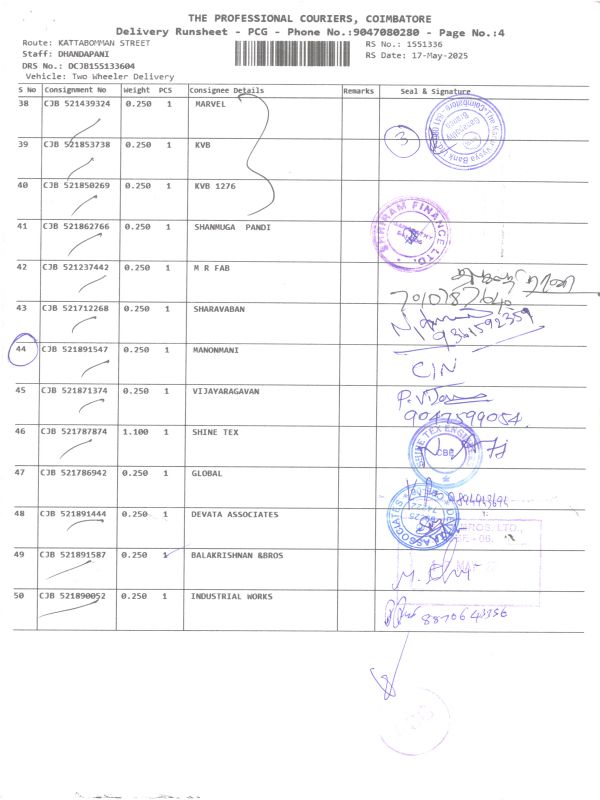 THE PROFESSIONAL COURIERS, COIMBATORE
Delivery Runsheet - PCG - Phone No.:9047080280 - Page No.:4
Route: KATTABOMMAN STREET
RS No.: 1551336
Staff: DHANDAPANI
RS Date: 17-May-2025
DRS No.: DCJB155133604
Vehicle: Two Wheeler Delivery
S No Consignment No Weight PCS Consignee Details Remarks Seal & Signature
38 CJB 521439324 0.250 1 MARVEL
39 CJB 521853738 0.250 1 KVB 3
40 CJB 521850269 0.250 1 KVB 1276
41 CJB 521862766 0.250 1 SHANMUGA PANDI SHRIRAM FINANCE LTD.
42 CJB 521237442 0.250 1 M R FAB
43 CJB 521712268 0.250 1 SHARAVABAN
44 CJB 521891547 0.250 1 MANONMANI CIN
45 CJB 521871374 0.250 1 VIJAYARAGAVAN
9047599054
46 CJB 521787874 1.100 1 SHINE TEX
CBE
47 CJB 521786942 0.250 1 GLOBAL
48 CJB 521891444 0.250 1 DEVATA ASSOCIATES
49 CJB 521891587 0.250 1 BALAKRISHNAN &BROS
50 CJB 521890052 0.250 1 INDUSTRIAL WORKS 8870643356